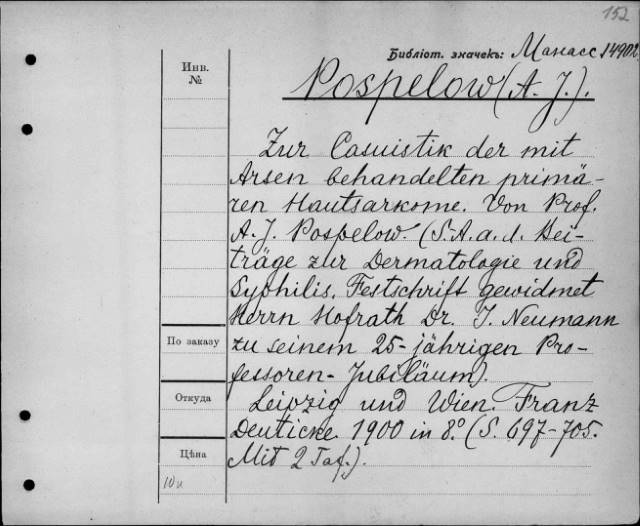 152
Библіот. значекъ: Манасс 14902
Инв.
№
Pospelow (A. J.).
Zur Casuistik der mit
Arsen behandelten primä-
ren Hautsarkome. Von Prof.
A. J. Pospelow. (S. A. a. d. Bei-
träge zur Dermatologie und
Syphilis. Festschrift gewidmet
Herrn Hofrath Dr. J. Neumann
По заказу
zu seinem 25-jährigen Pro-
fessoren-Jubiläum).
Откуда
Leipzig und Wien. Franz
Deuticke. 1900 in 8.° (S. 697-705.
Цѣна
Mit 2 Taf.).